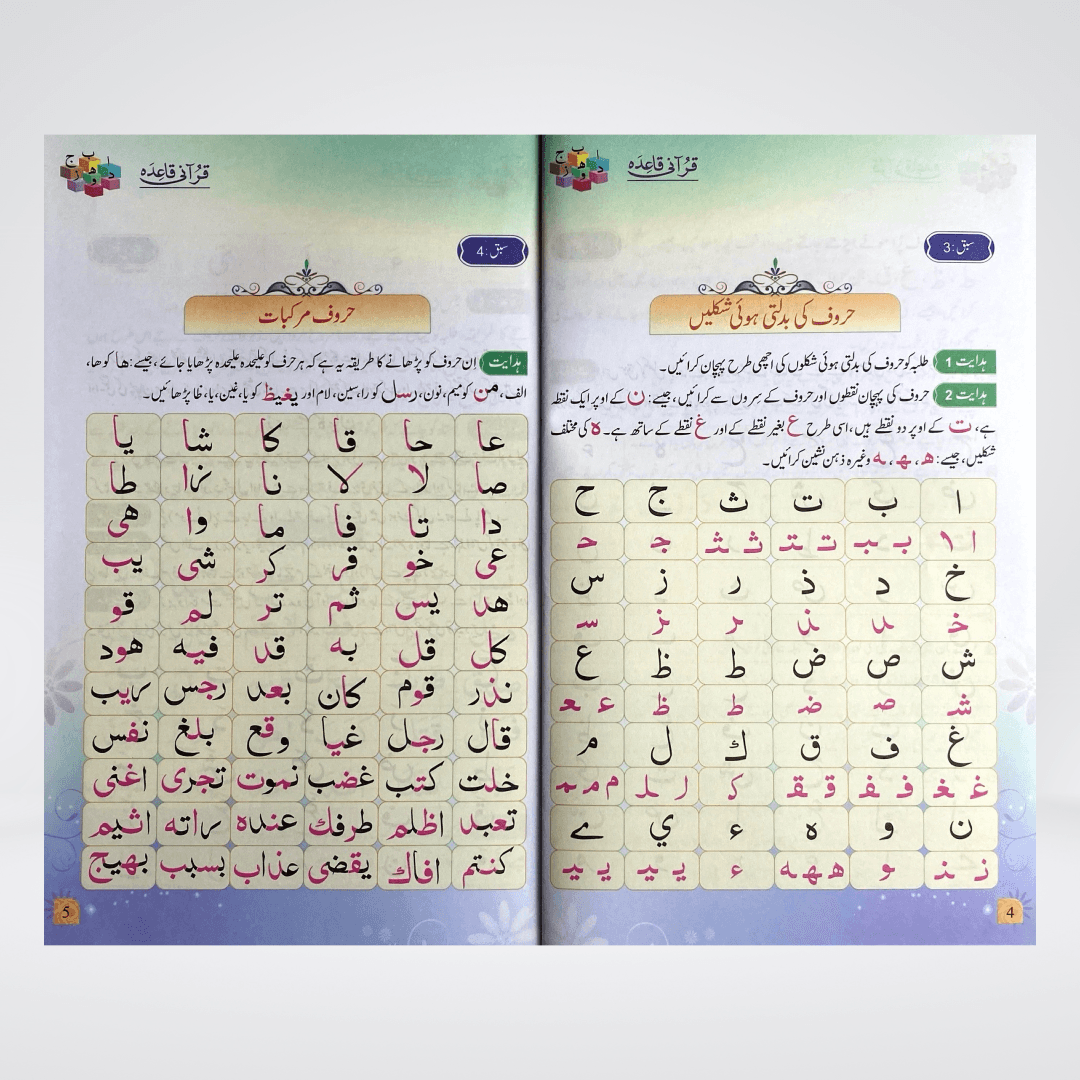 قرآنی قاعدہ
سبق: 3
حروف کی بدلتی ہوئی شکلیں
ہدایت 1 طلبہ کو حروف کی بدلتی ہوئی شکلوں کی اچھی طرح پہچان کرائیں۔
ہدایت 2 حروف کی پہچان نقطوں اور حروف کے سِروں سے کرائیں، جیسے: ن کے اوپر ایک نقطہ
ہے، ت کے اوپر دو نقطے ہیں، اسی طرح ع بغیر نقطے کے اور غ نقطے کے ساتھ ہے۔ ہ کی مختلف
شکلیں، جیسے: ہ، ﮩ، ﮫ وغیرہ ذہن نشین کرائیں۔
ا ب ت ث ج ح
ا لا بـ ـبـ تـ ـتـ ثـ ـثـ جـ حـ
خ د ذ ر ز س
خـ ـد ـذ ـر ـز سـ
ش ص ض ط ظ ع
شـ صـ ضـ ط ظ عـ ـعـ
غ ف ق ك ل م
غـ ـغـ فـ ـفـ قـ ـقـ كـ لـ ـلـ مـ ـمـ
ن و ه ء ي ے
نـ ـنـ ـو هـ ـهـ ـه ء يـ ـيـ يـ ـيـ
4
قرآنی قاعدہ
سبق: 4
حروف مرکبات
ہدایت اِن حروف کو پڑھانے کا طریقہ یہ ہے کہ ہر حرف کو علیحدہ علیحدہ پڑھایا جائے، جیسے: ها کو ھا،
الف، من کو میم، نون، رسل کو را، سین، لام اور یغیظ کو یا، غین، یا، ظا پڑھائیں۔
عا حا قا كا شا يا
صا لا لا نا زا طا
دا تا فا ما وا هى
عى خو قر كر شى يب
هد يس ثم تر لم قو
كل قل به قد فيه هود
نذر قوم كان بعد رجس ريب
قال رجل غيا وقع بلغ نفس
خلت كتب غضب نموت تجرى اغنى
تعبد اظلم طرفك عنده راته اثيم
كنتم افاك يقضى عذاب بسبب بهيج
5